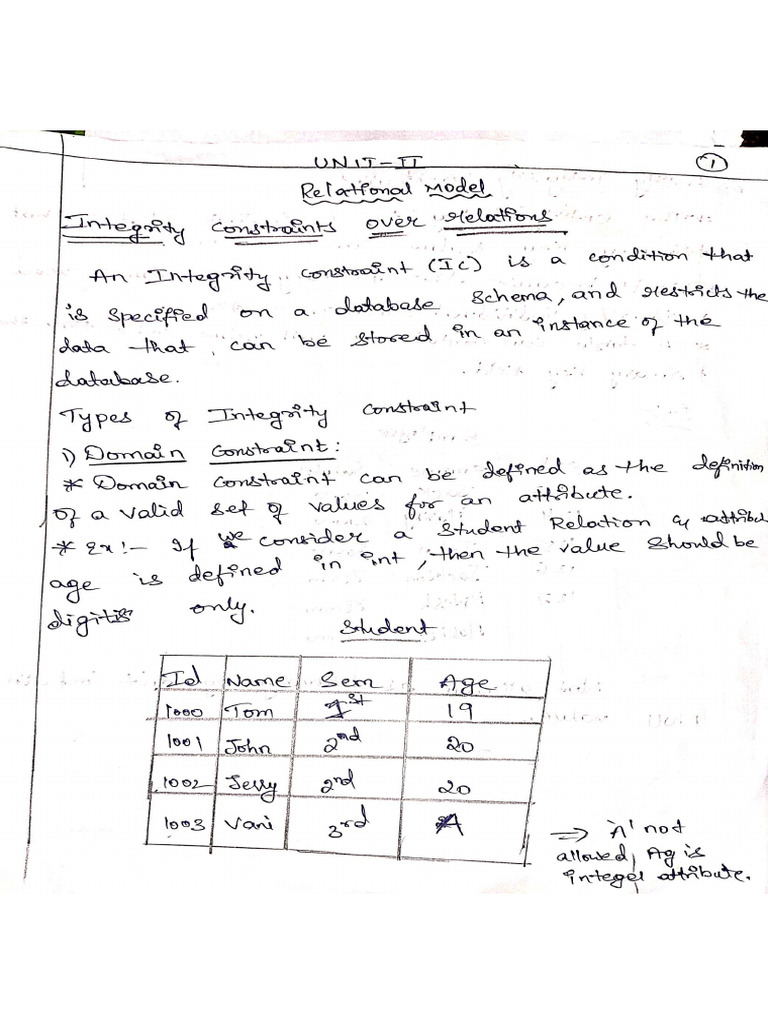 UNIT-II
1
Relational Model
Integrity Constraints over relations
An Integrity constraint (IC) is a condition that
is specified on a database schema, and restricts the
data that can be stored in an instance of the
database.
Types of Integrity constraint
1) Domain Constraint:
* Domain Constraint can be defined as the definition
of a valid set of values for an attribute.
* Ex:- If we consider a Student Relation & attribut
age is defined in int, then the value should be
digits only.
Student
Id Name Sem Age
1000 Tom 1st 19
1001 John 2nd 20
1002 Jerry 2nd 20
1003 Vani 3rd A
⇒ 'A' not
allowed, Ag is
integer attribute.